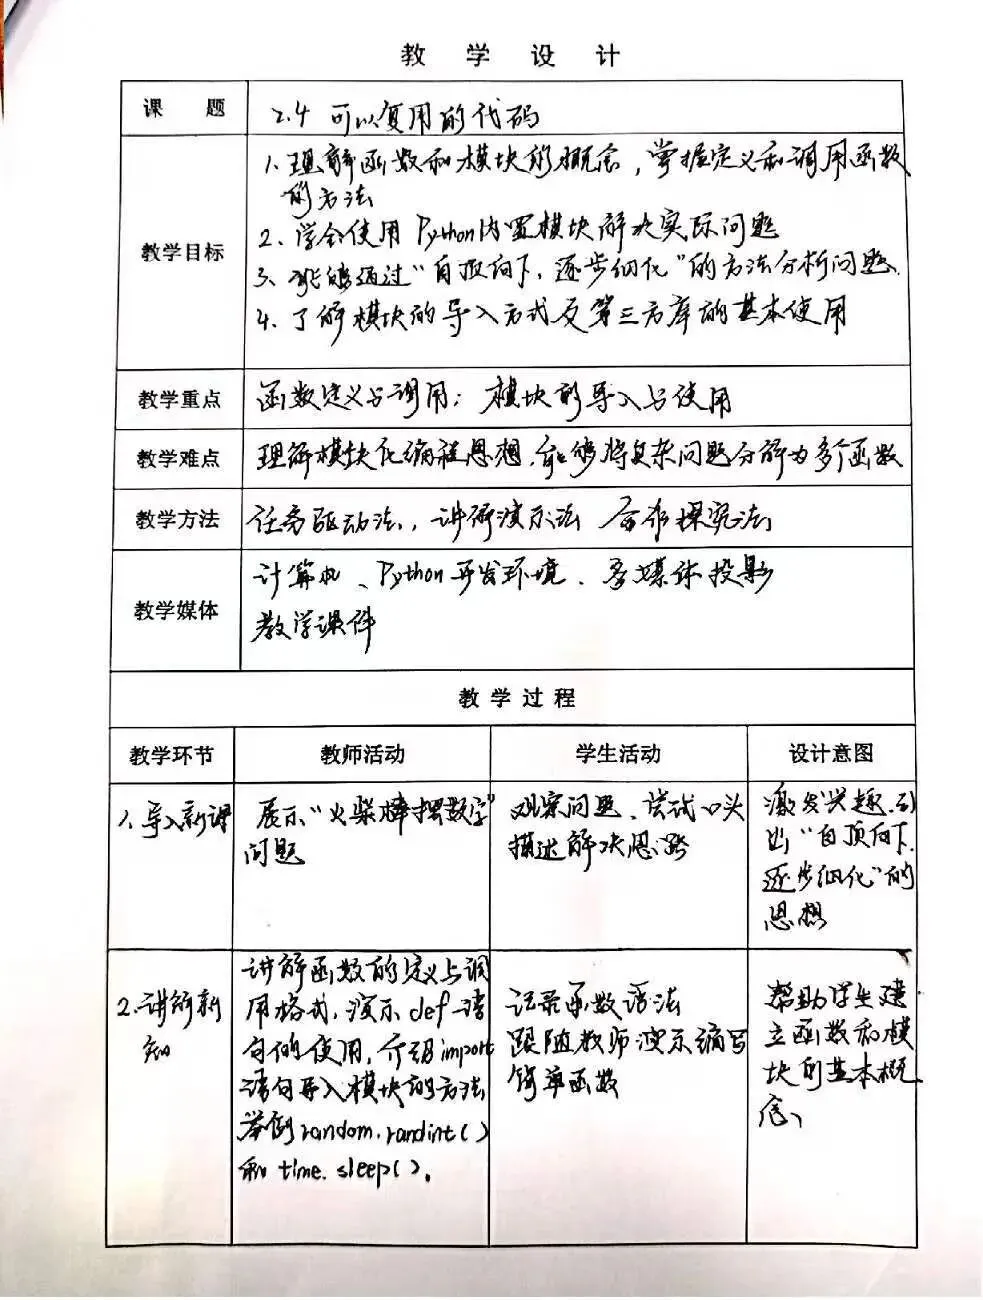 教 学 设 计
课 题
2.4 可以复用的代码
教学目标
1. 理解函数和模块的概念，掌握定义和调用函数
的方法
2、学会使用 Python内置模块解决实际问题
3、能够通过“自顶向下，逐步细化”的方法分析问题.
4. 了解模块的导入方式及第三方库的基本使用
教学重点
函数定义与调用；模块的导入与使用
教学难点
理解模块化编程思想，能够将复杂问题分解为多个函数
教学方法
任务驱动法，讲解演示法 合作探究法
教学媒体
计算机、Python开发环境、多媒体投影
教学课件
教 学 过 程
教学环节
教师活动
学生活动
设计意图
1、导入新课
展示“火柴棒摆数字”
问题
观察问题、尝试口头
描述解决思路
激发兴趣，引
出“自顶向下，
逐步细化”的
思想
2.讲解新
知
讲解函数的定义与调
用格式，演示def语
句的使用，介绍import
语句导入模块的方法
举例random.randint()
和time.sleep()。
记录函数语法
跟随教师演示编写
简单函数
帮助学生建
立函数和模
块的基本概
念、